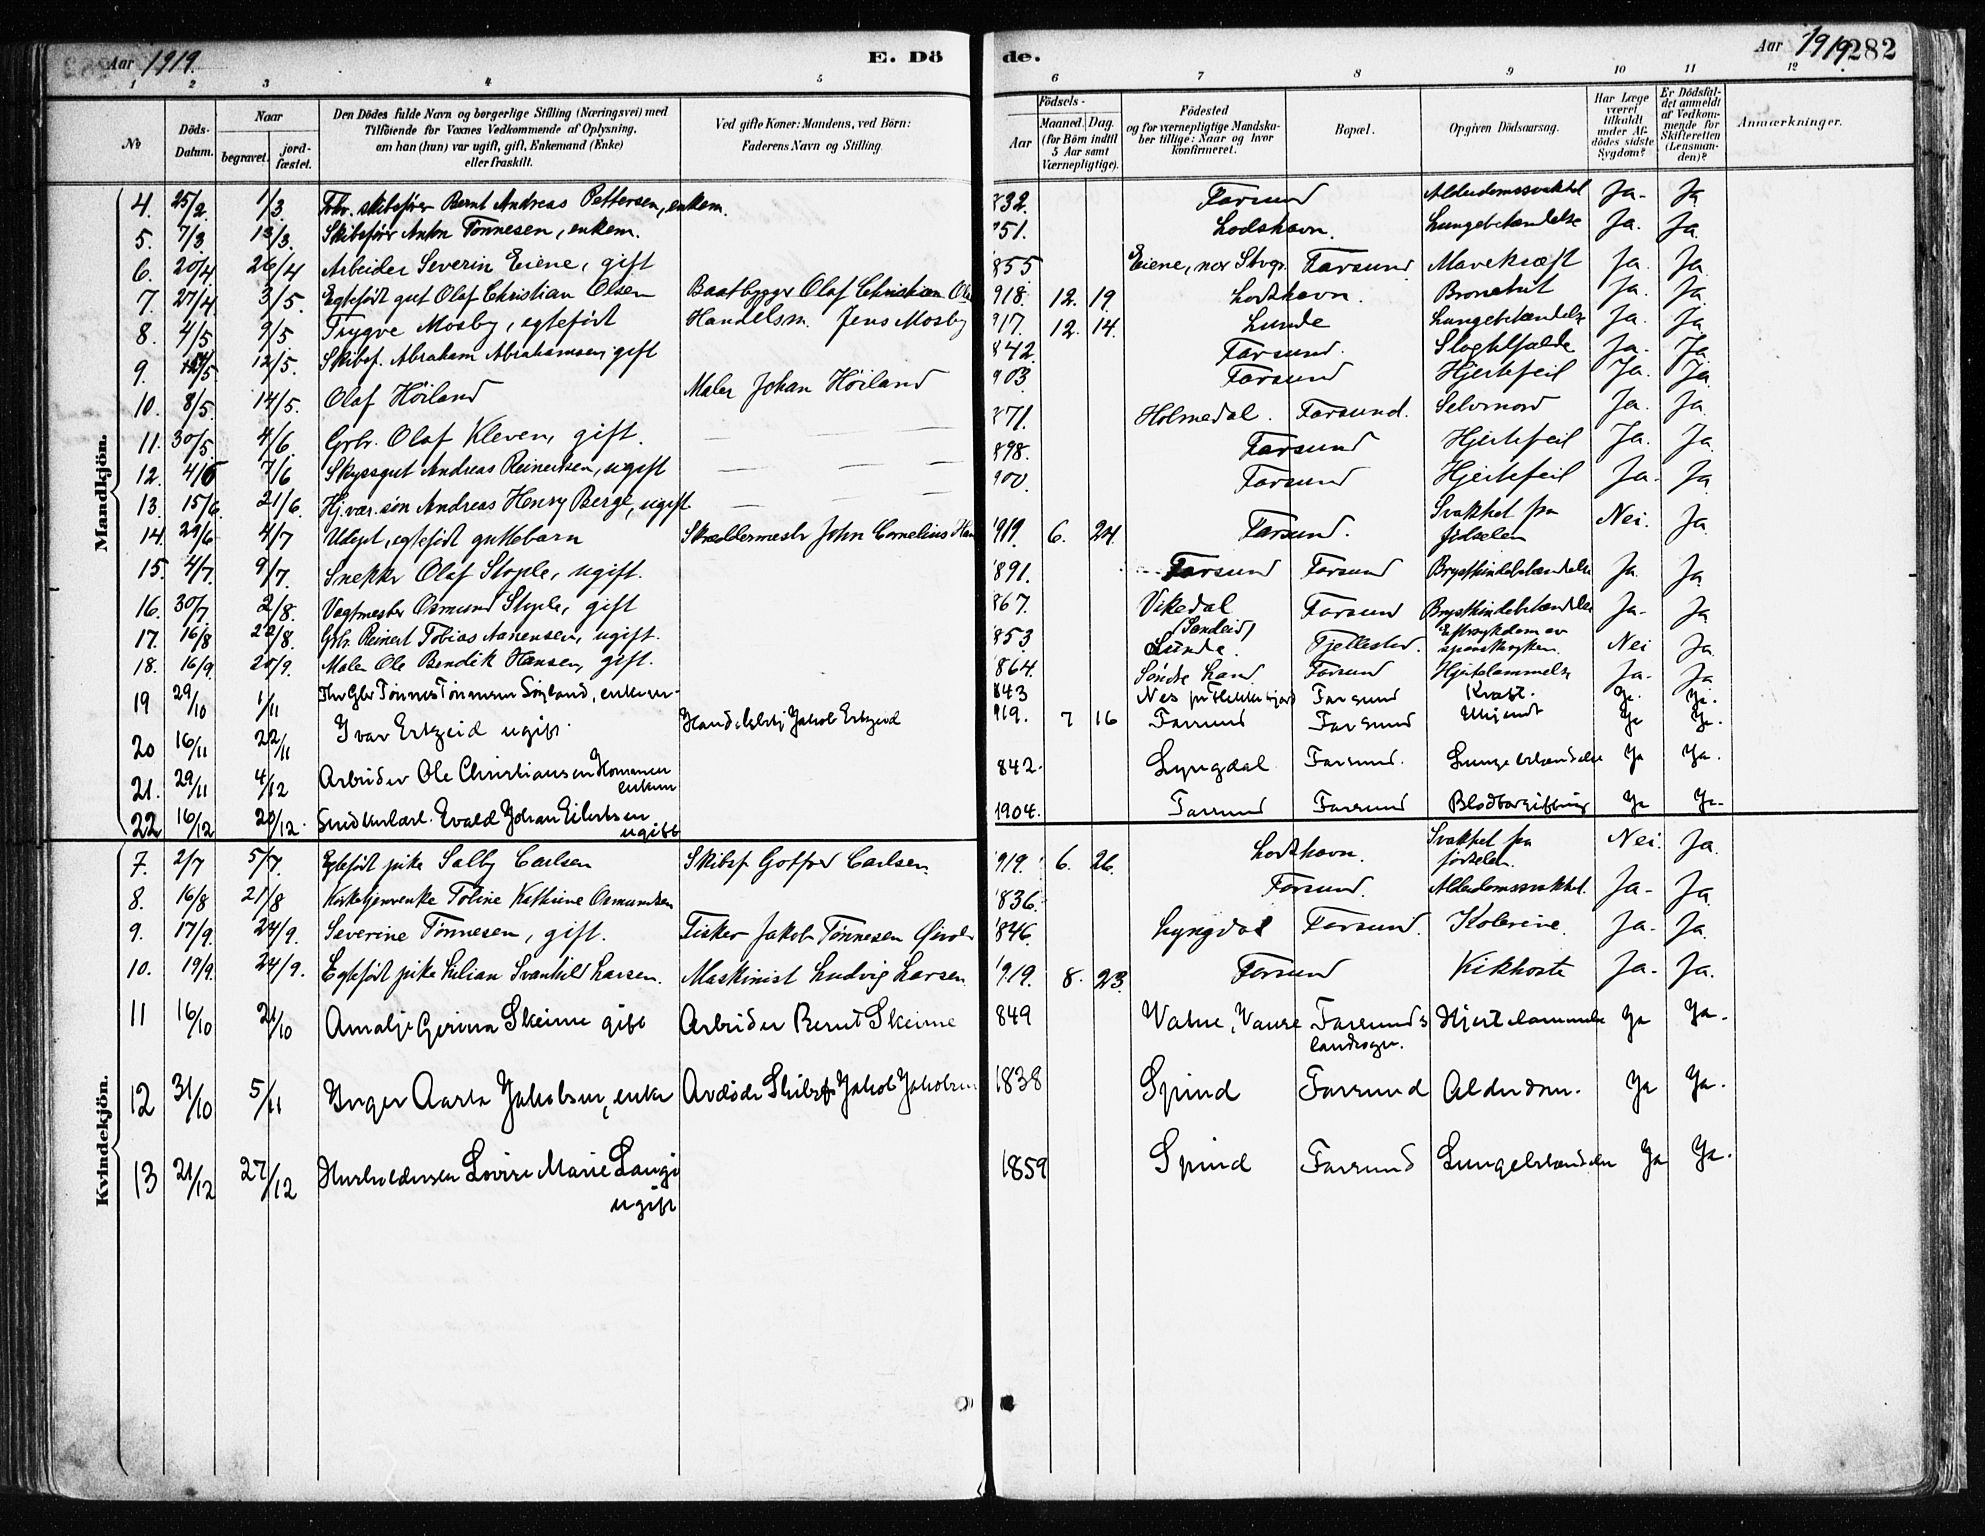 Aar 1919. E. Dö
de. Aar 1919. 282
1 2 3 4 5 6 7 8 9 10 11 12
No
Döds-Datum.
Naar
begravet.
jord-fæstet.
Den Dödes fulde Navn og borgerlige Stilling (Næringsvei) med
Tilföiende for Voxnes Vedkommende af Oplysning,
om han (hun) var ugift, gift, Enkemand (Enke)
eller fraskilt.
Ved gifte Koner: Mandens, ved Börn:
Faderens Navn og Stilling
Födsels-
Aar
Maaned. Dag.
(for Börn indtil
5 Aar samt
Værnepligtige).
Födested
og for værnepligtige Mandska-
ber tillige: Naar og hvor
konfirmeret.
Bopæl.
Opgiven Dödsaarsag.
Har Læge
været
tilkaldt
under Af-
dödes sidste
Sygdom?
Er Dödsfal-
det anmeldt
af Vedkom-
mende for
Skifteretten
(Lensman-
den)?
Anmærkninger.
Mandkjön.
4. 25/2. 1/3. Fhv. skibsfører Bernt Andreas Pettersen, enkem. 832. Farsund Alderdomssvakhet Ja. Ja
5. 7/3. 13/3. Skibsfører Anton Tønnesen, enkem. 851. Lodshavn. Lungebetændelse Ja. Ja.
6. 20/4 26/4 Arbeider Severin Eiene, gift 855 Eiene, Farsund Mavekræft Ja. Ja
7. 27/4. 3/5. Egtefødt gut Olaf Christian Olsen Baatbygger Olaf Christian 918. 12. 19. Loshavn. Bronchit Ja. Ja.
8. 4/5 9/5. Trygve Mosby, egtefødt Handelsm. Jens Mosby 917. 12. 14. Lunde Lungebetændelse Ja. Ja
9. 12/5. Skibsf. Abraham Abrahamsen, gift 842. Farsund. Slagtilfælde Ja. Ja
10. 8/5. 14/5. Olaf Høiland Maler Johan Høiland 903 Farsund Hjertefeil Ja. Ja.
11. 30/5. 4/6. Grbr. Olaf Kleven, gift. 871. Holmedal. Farsund. Selvmord Ja. Ja.
12. 4/6 7/6 Skyssgut Andreas Reinertsen, ugift 898. Farsund Hjertefeil Ja. Ja.
13. 15/6. 21/6. Hj.vær. søn Andreas Henry Berge, ugift 900. Farsund Hjertefeil Ja. Ja.
14. 29/6 4/7 Udøpt, egtefødt guttebarn Skræddermestr John Cornelius 1919. 6. 24. Farsund. Svakhet fra fødselen Nei. Ja.
15. 4/7. 9/7. Snekker Olaf Stople, ugift. 1891. Farsund Farsund Brysthindebetændelse Ja. Ja
16. 30/7 2/8. Vagtmester Osmund Stople, gift 867. Vikedal (Sandeid) Farsund Brysthindebetændelse Ja. Ja
17. 16/8 22/8. Grbr. Reinert Tobias Aanensen, ugift. 1853 Lunde. Fjellestad. Eftersykdom av spanskesyken. Nei Ja.
18. 16/9. 20/9. Maler Ole Bendik Hansen, gift. 1864. Søndre Land Farsund Hjertelammelse Ja. Ja
19 29/10 1/11 Fhv Gbr Tønnes Tønnesen 843 Nes pr Flekkefjord Farsund Kræft. Ja. Ja.
20 16/11 22/11 Ivar Erkzeid ugift. Jakob Erkzeid 919. 7 16 Farsund Farsund Ja Ja.
21. 29/11 4/12 Arbeider Ole Christiansen enkem 842. Lyngdal Farsund. Lungebetændelse Ja Ja.
22 16/12 20/12. Evald Johan Eilertsen ugift 1904. Farsund Farsund Blodforgiftning Ja Ja.
Kvindekjön.
7. 2/7 5/7. Egtefødt pike Solby Carlsen Skibsf. Gotfred Carlsen. 1919. 6. 26. Loshavn. Svakhet fra fødselen. Nei. Ja.
8. 16/8 21/8 Kirketjenerenke Toline Kathrine Osmundsen 1836. Farsund. Alderdomssvakhet. Ja. Ja.
9. 17/9. 24/9. Severine Tønnesen, gift. Fisker Jakob Tønnesen 1846. Lyngdal Farsund. Kolerine. Ja. Ja.
10. 19/9. 24/9. Egtefødt pike Lilian Svanhild Larsen. Maskinist Ludvig Larsen. 1919. 8. 23. Farsund Kikhoste Ja. Ja.
11 16/10 21/10 Amalie Gurina Skeime gift Arbeider Bernt Skeime 849 Vatne, Vanse Farsunds landsogn. Hjertelammelse Ja Ja.
12 31/10 5/11 Inger Aasta Jakobsen, enke Avdøde Skibsf Jakob Jakobsen 1838 Spind Farsund Alderdom. Ja Ja.
13 21/12 27/12 Husholderske Lovise Marie Lange ugift 1859 Spind Farsund Lungebetændelse Ja Ja.